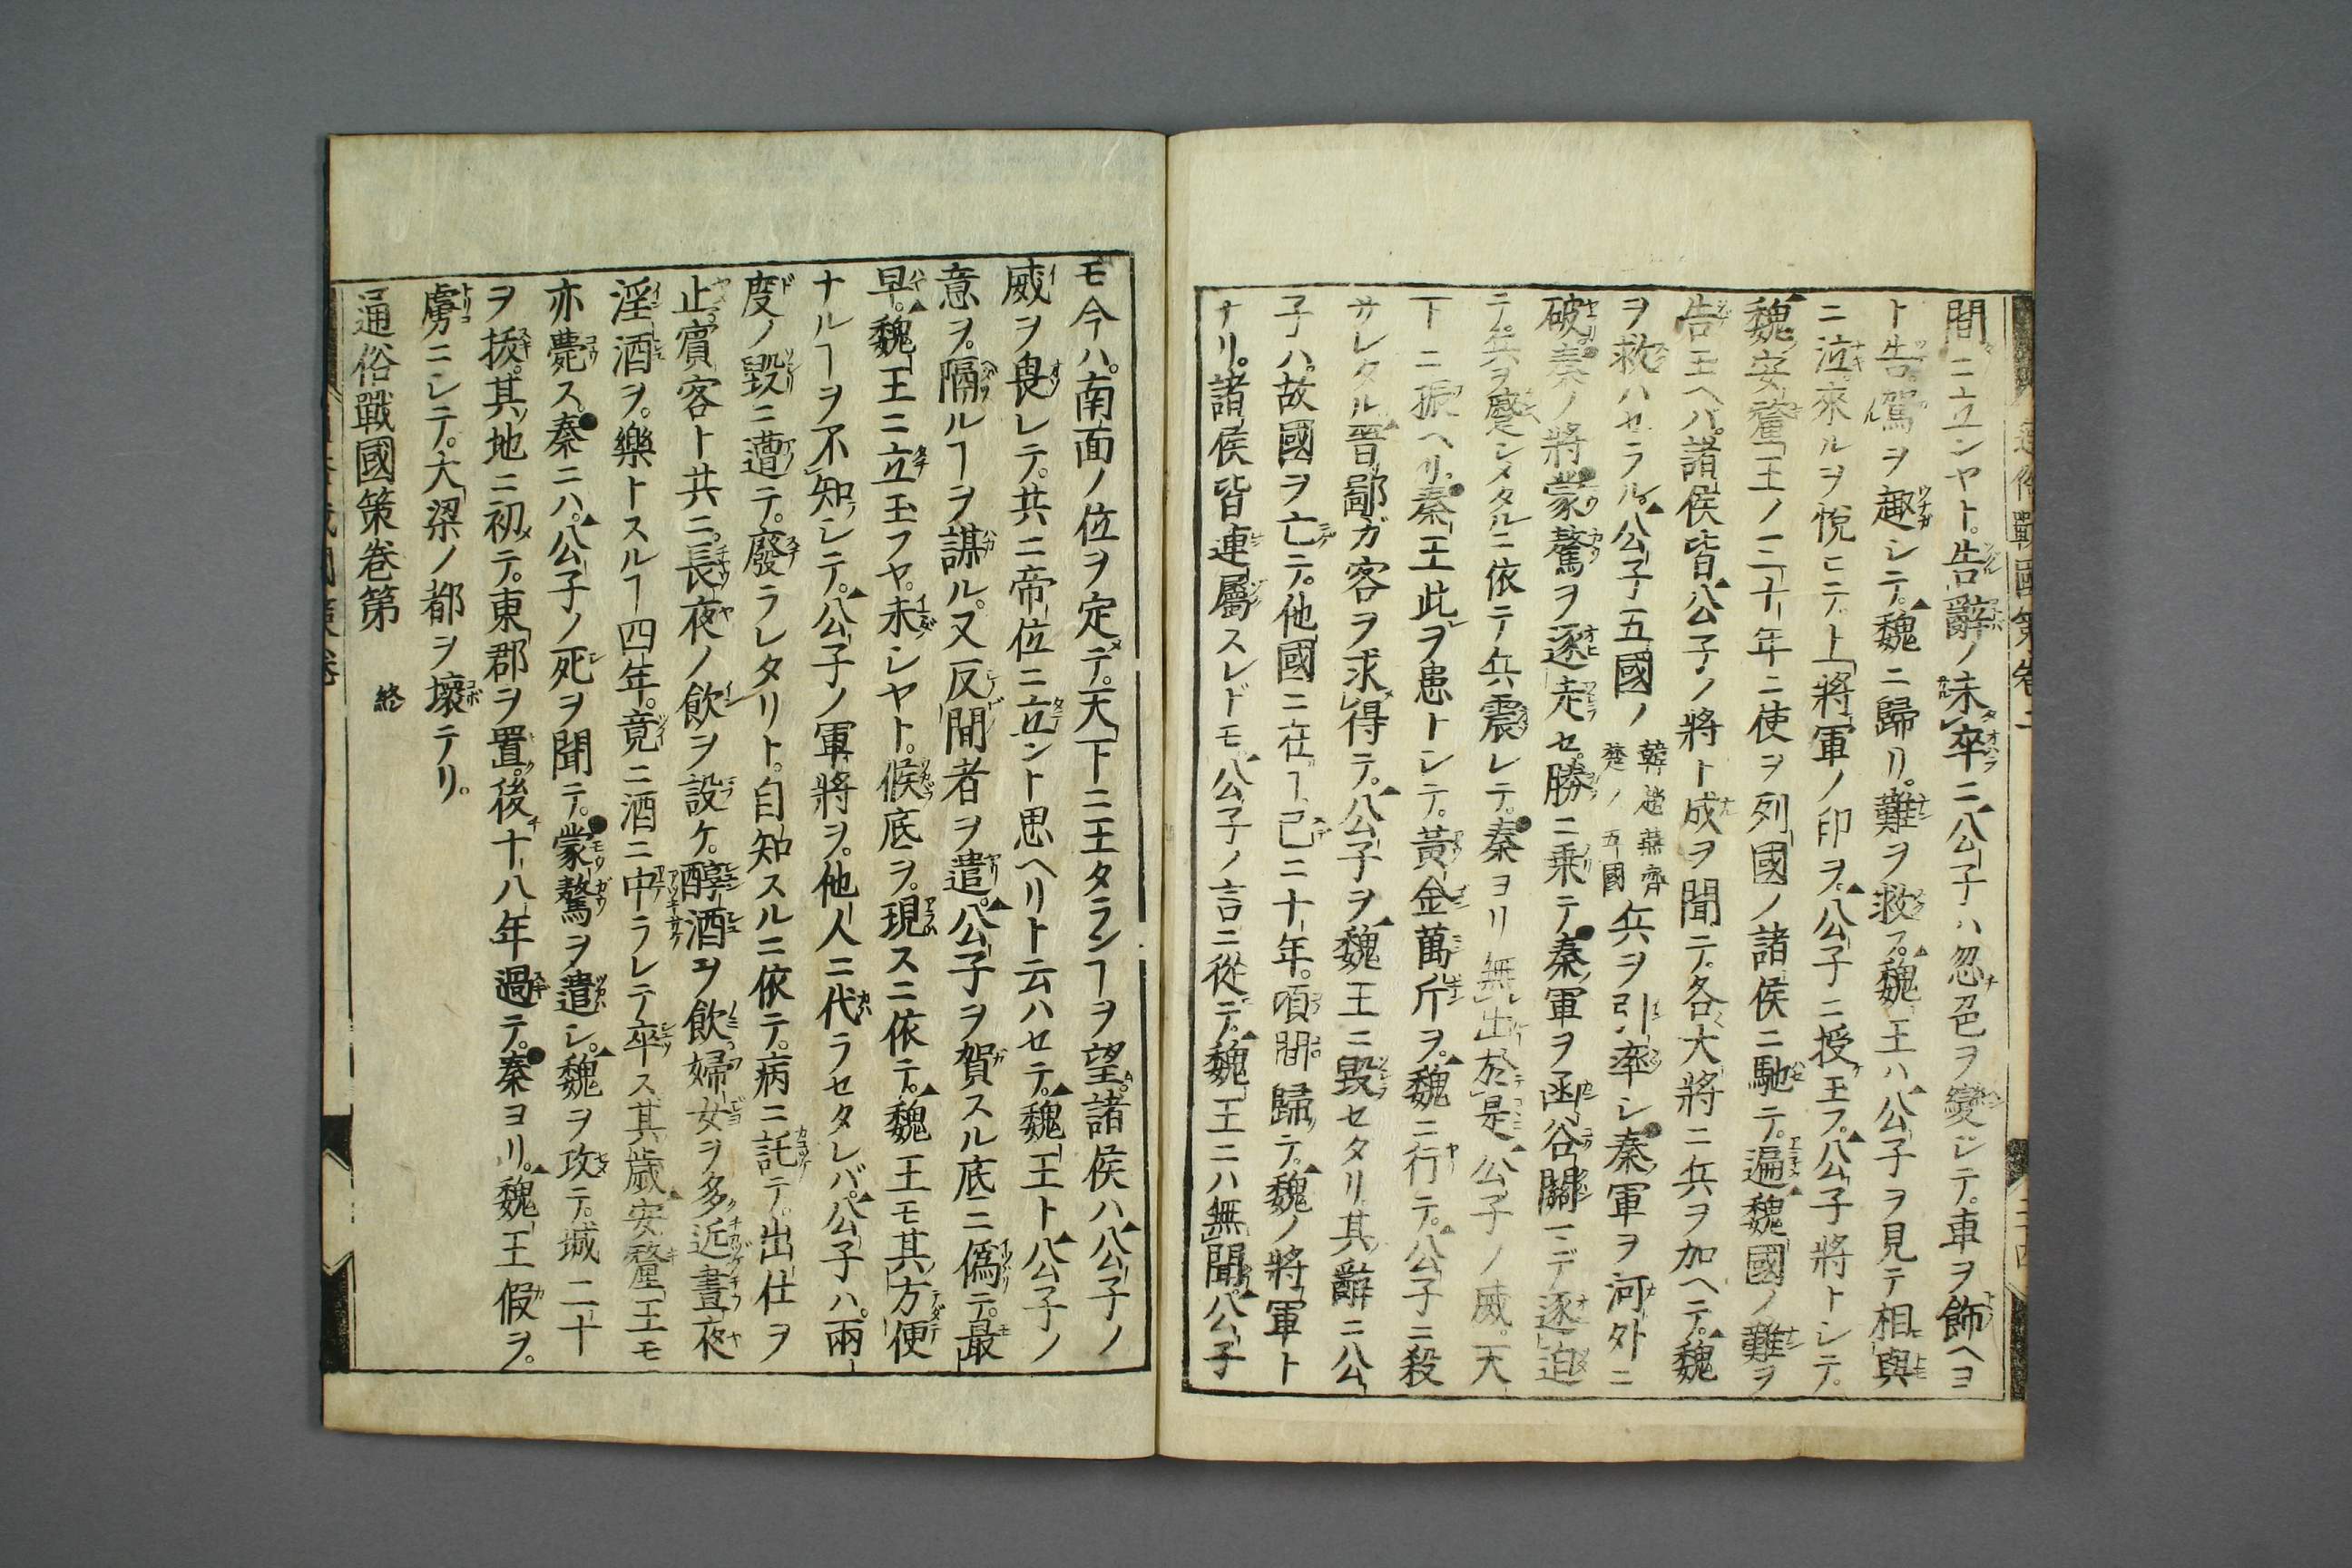 間ニ立ンヤト。告辭ノ未卒ニ公子ハ忽色ヲ變シテ。車ヲ飾ヘヨ
ト告。駕ヲ趣シテ。魏ニ歸リ。難ヲ救フ。魏王ハ公子ヲ見テ相與
ニ泣。來ルヲ悅ヒテ。上將軍ノ印ヲ。公子ニ授玉フ。公子將トシテ。
魏安釐王ノ三十年ニ使ヲ列國ノ諸侯ニ馳テ。遍魏國ノ難ヲ
告玉ヘバ。諸侯皆公子ノ將ト成ヲ聞テ。各大將ニ兵ヲ加ヘテ。魏
ヲ救ハセラル。公子五國ノ韓趙燕齊楚ノ五國兵ヲ引率シ秦軍ヲ河外ニ
破。秦ノ將蒙驁ヲ逐走セ。勝ニ乗テ秦軍ヲ函谷關マデ逐迫
テ。兵ヲ慶シメタルニ依テ兵震レテ。秦ヨリ無出於是公子ノ威。天
下ニ振ヘリ。秦王此ヲ患トシテ。黃金萬斤ヲ。魏ニ行テ。公子ニ殺
サレタル晋鄙ガ客ヲ求得テ。公子ヲ魏王ニ毀セタリ其辭ニ公
子ハ。故國ヲ亡テ。他國ニ在ヿ已ニ十年。頃間歸テ。魏ノ將軍ト
ナリ。諸侯皆連屬スレドモ。公子ノ言ニ從テ。魏王ニハ無聞公子
モ今ハ。南面ノ位ヲ定テ。天下ニ王タランヿヲ望。諸侯ハ公子ノ
威ヲ畏レテ。共ニ帝位ニ立ント思ヘリト云ハセテ。魏王ト公子ノ
意ヲ。隔ルヿヲ謀ル。又反間者ヲ遣。公子ヲ賀スル底ニ僞テ。最
早。魏王ニ立玉フヤ。未シヤト。候底ヲ。現スニ依テ。魏王モ其方便
ナルヿヲ不知シテ。公子ノ軍將ヲ。他人ニ代ラセタレバ。公子ハ。兩
度ノ毀ニ遭テ。廢ラレタリト。自知スルニ依テ。病ニ託テ。出仕ヲ
止。賓客ト共ニ。長夜ノ飲ヲ設ケ。醇酒ヲ飲婦女ヲ多近晝夜
淫酒ヲ。樂トスルヿ四年。竟ニ酒ニ中ラレテ卒ス其歲安釐王モ
亦薨ス。秦ニハ。公子ノ死ヲ聞テ。蒙驁ヲ遣シ。魏ヲ攻テ。城二十
ヲ拔。其地ニ初テ。東郡ヲ置。後十八年過テ。秦ヨリ。魏王假ヲ。
虜ニシテ。大梁ノ都ヲ壞テリ。
通俗戰國策卷第　終